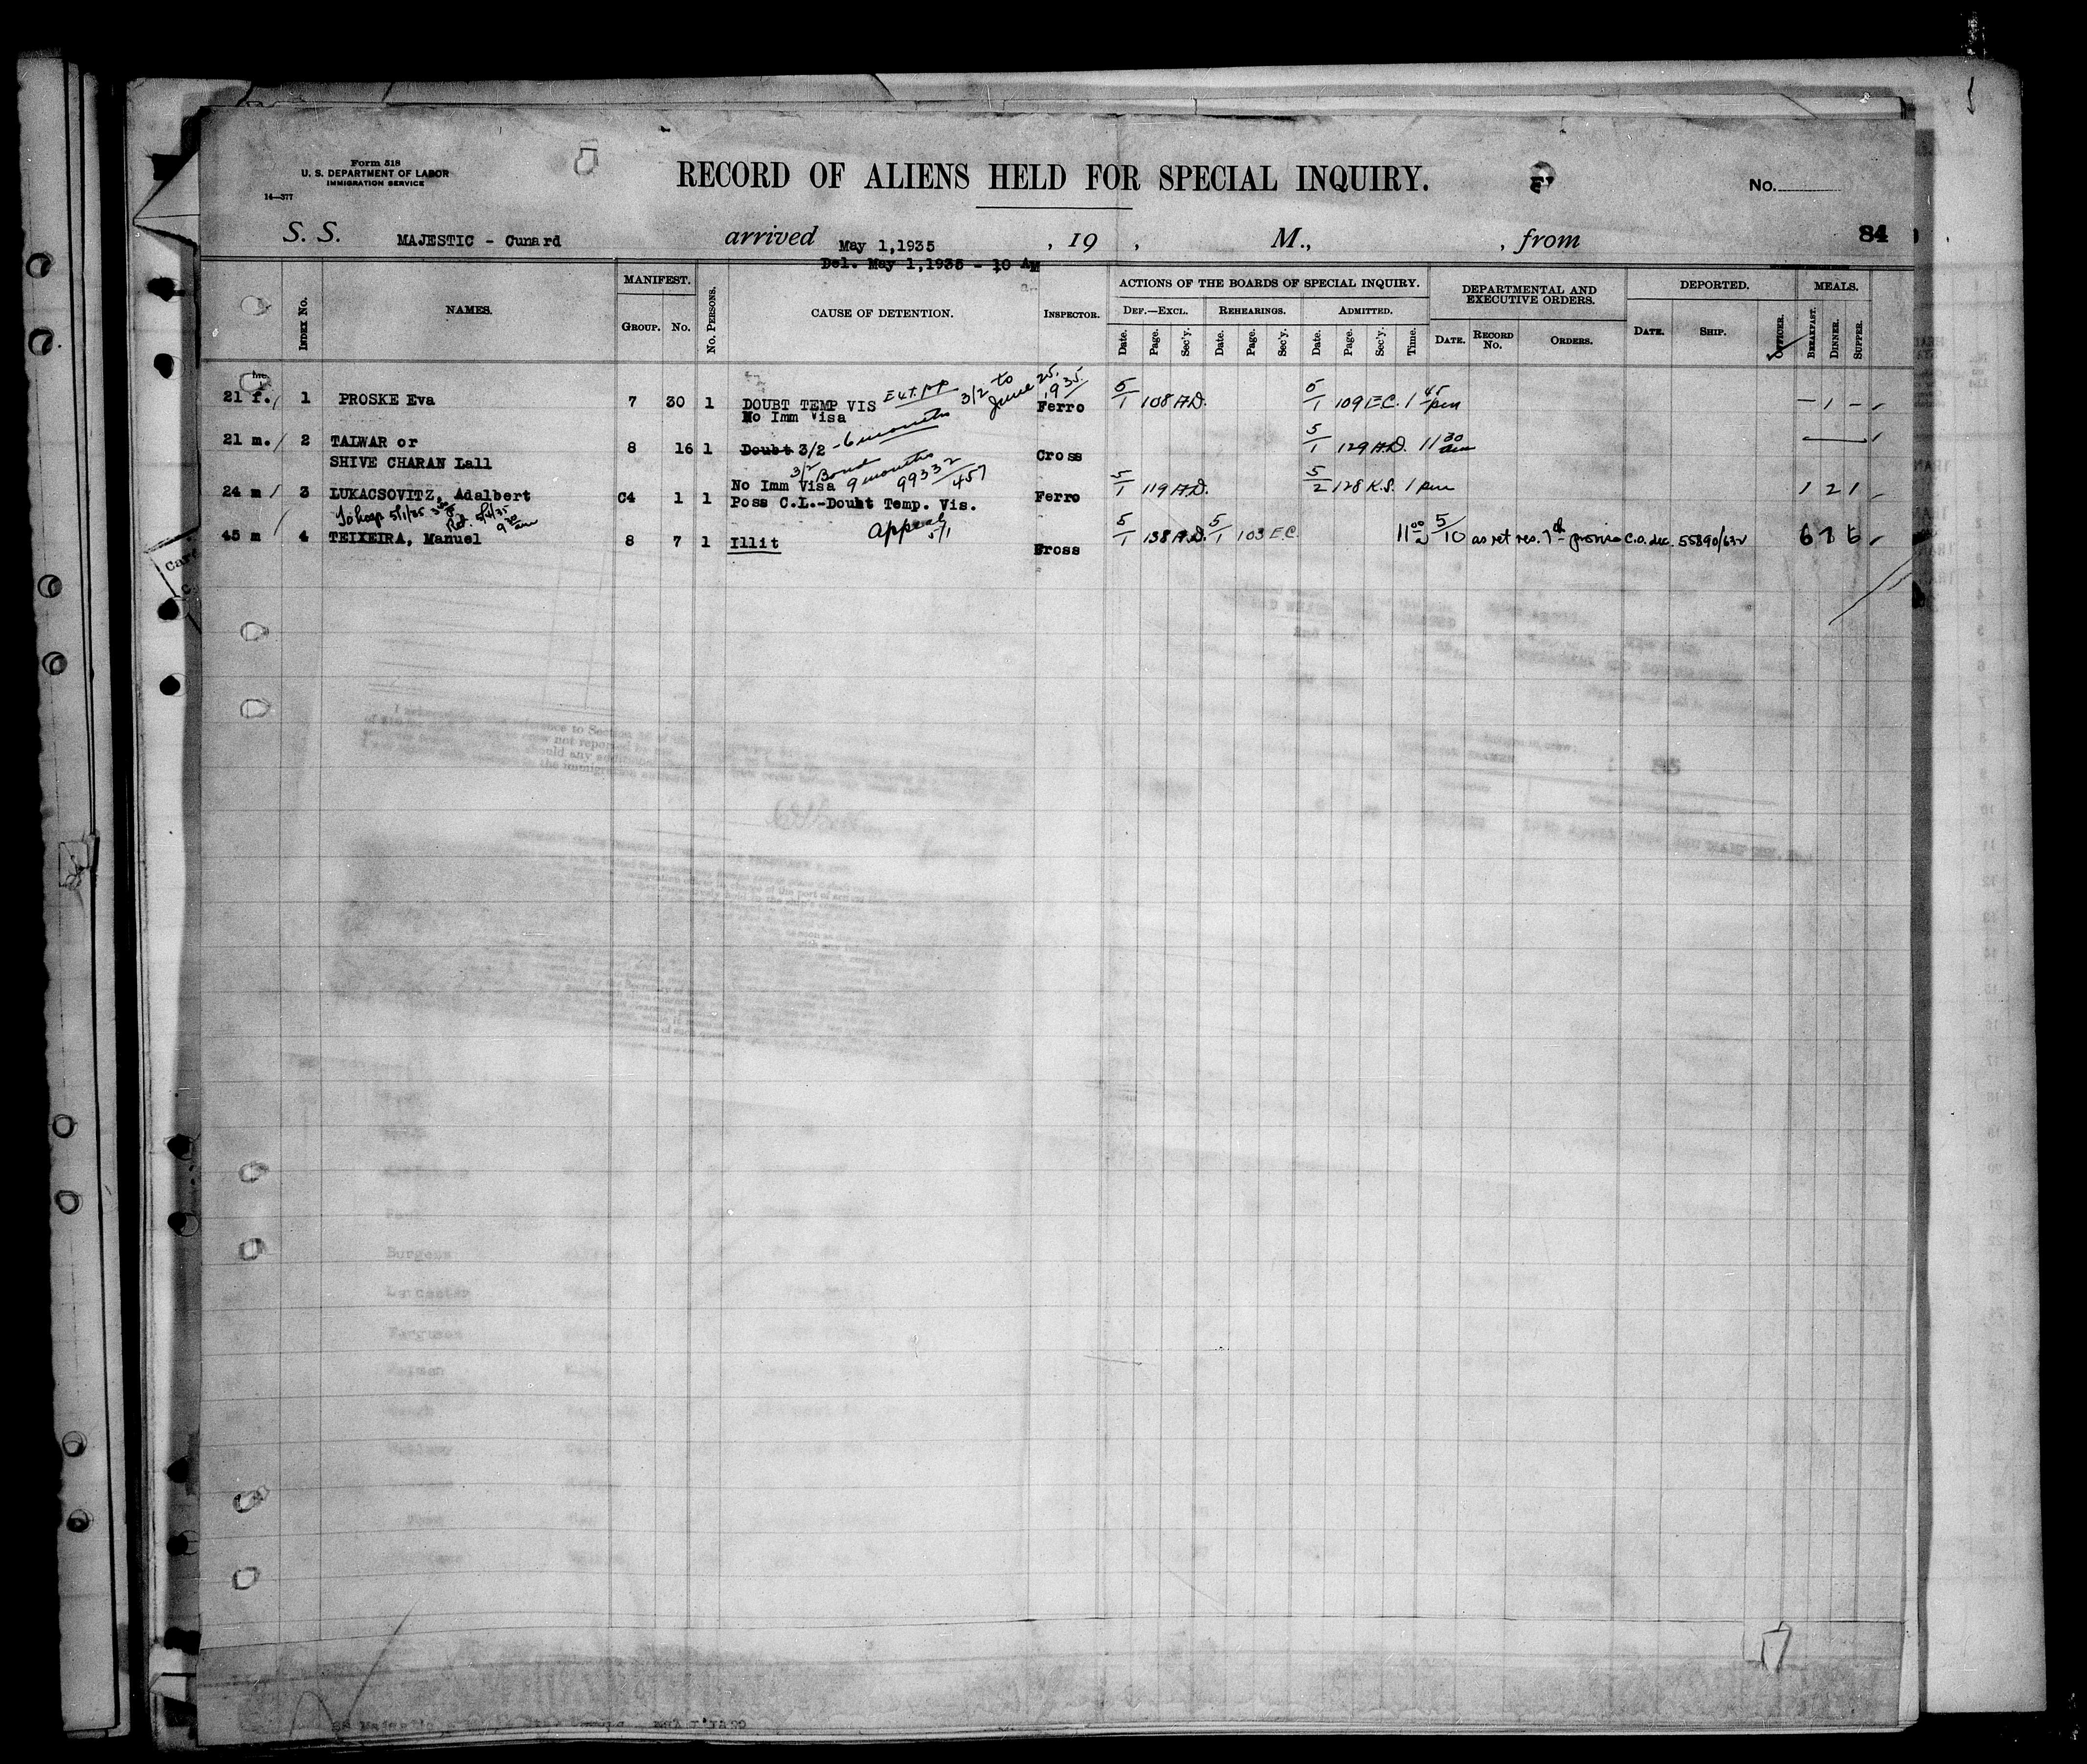 Form 518
U. S. DEPARTMENT OF LABOR
IMMIGRATION SERVICE
14—377
RECORD OF ALIENS HELD FOR SPECIAL INQUIRY.
No.
S. S. MAJESTIC - Cunard arrived May 1,1935 , 19 , M., , from 84
Del. May 1,1935 - 10 AM
INDEX No. NAMES. MANIFEST. GROUP. No. No. PERSONS. CAUSE OF DETENTION. INSPECTOR. ACTIONS OF THE BOARDS OF SPECIAL INQUIRY. DEPARTMENTAL AND EXECUTIVE ORDERS. DEPORTED. MEALS.
DEF.—EXCL. REHEARINGS. ADMITTED.
Date. Page. Sec'y. Date. Page. Sec'y. Date. Page. Sec'y. Time. DATE. RECORD No. ORDERS. DATE. SHIP. OFFICER. BREAKFAST. DINNER. SUPPER.
21 f. 1 PROSKE Eva 7 30 1 DOUBT TEMP VIS Ext. pp 3/2 to June 25, 1935 Ferro 5/1 108 A.D. 5/1 109 E.C. 1 45 pm – 1 –
No Imm Visa
21 m. 2 TALWAR or 8 16 1 Doubt 3/2 - 6 months Cross 5/1 129 A.D. 11 30 am
SHIVE CHARAN Lall
3/2 Bond 9 months 99332/457
24 m 3 LUKACSOVITZ, Adalbert C4 1 1 No Imm Visa Ferro 5/1 119 A.D. 5/2 128 K.S. 1 pm 1 2 1
Poss C.L.-Doubt Temp. Vis.
To hosp 5/1/35 Ret. 5/2/35 9 30 am
45 m 4 TEIXEIRA, Manuel 8 7 1 Illit Appeal 5/1 Bross 5/1 138 A.D. 5/1 103 E.C. 11 00 5/10 as ret res. 7th proviso C.O. dec. 55890/632 6
Burgess
Ferguson